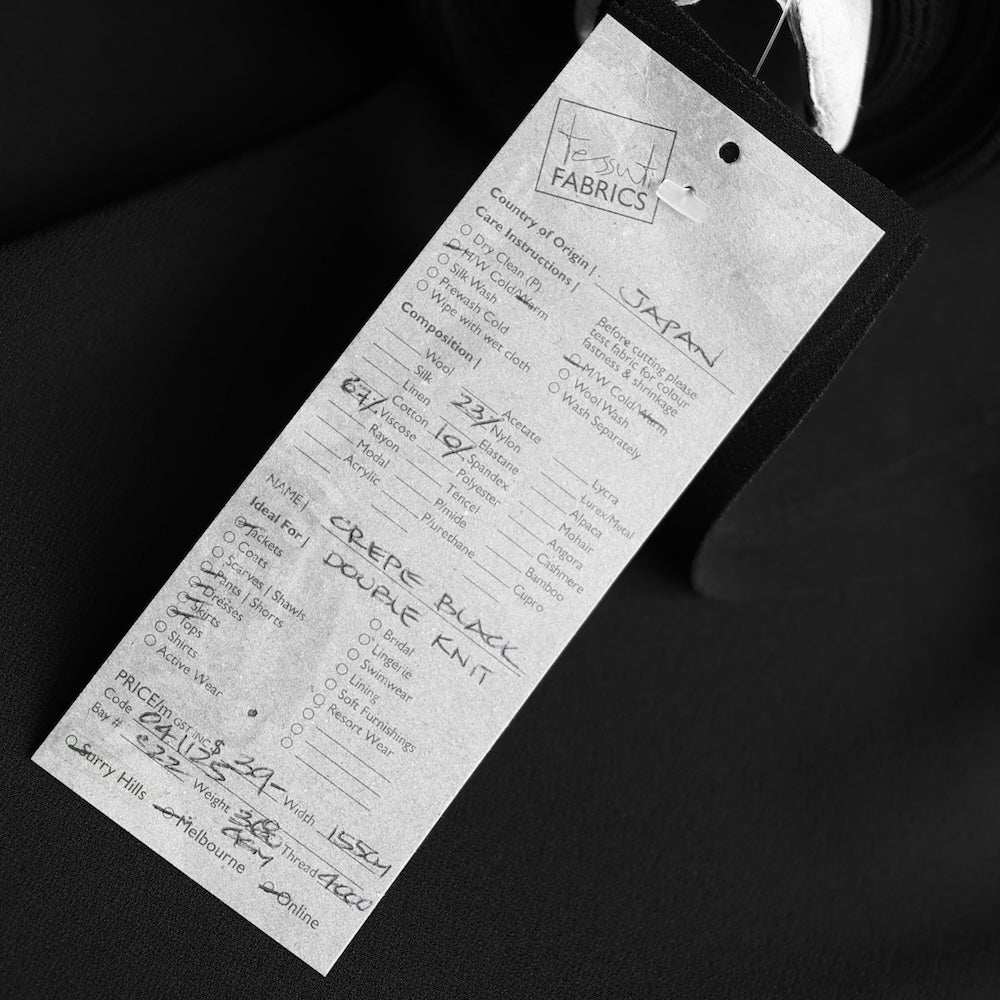 tessuti
FABRICS
Country of Origin | JAPAN
Care Instructions |
Dry Clean (P)
H/W Cold/Warm
Silk Wash
Prewash Cold
Wipe with wet cloth
Before cutting please
test fabric for colour
fastness & shrinkage
M/W Cold/Warm
Wool Wash
Wash Separately
Composition |
Wool
Silk
Linen
Cotton
67% Viscose
Rayon
Modal
Acrylic
Acetate
23% Nylon
Elastane
10% Spandex
Polyester
Tencel
P/mide
P/urethane
Lycra
Lurex/Metal
Alpaca
Mohair
Angora
Cashmere
Bamboo
Cupro
NAME | CREPE BLACK
DOUBLE KNIT
Ideal For |
Jackets
Coats
Scarves | Shawls
Pants | Shorts
Dresses
Skirts
Tops
Shirts
Active Wear
Bridal
Lingerie
Swimwear
Lining
Soft Furnishings
Resort Wear
PRICE/m GST INC $ 39- Width 155CM
Code 04-1125 Weight GRM Thread 4000
Bay # C22
Surry Hills Melbourne Online